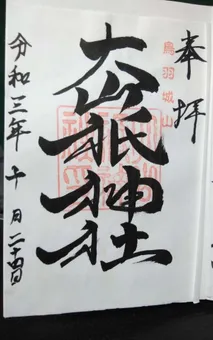 奉拝
鳥羽城山
大山祇神社
令和三年十月二十四日